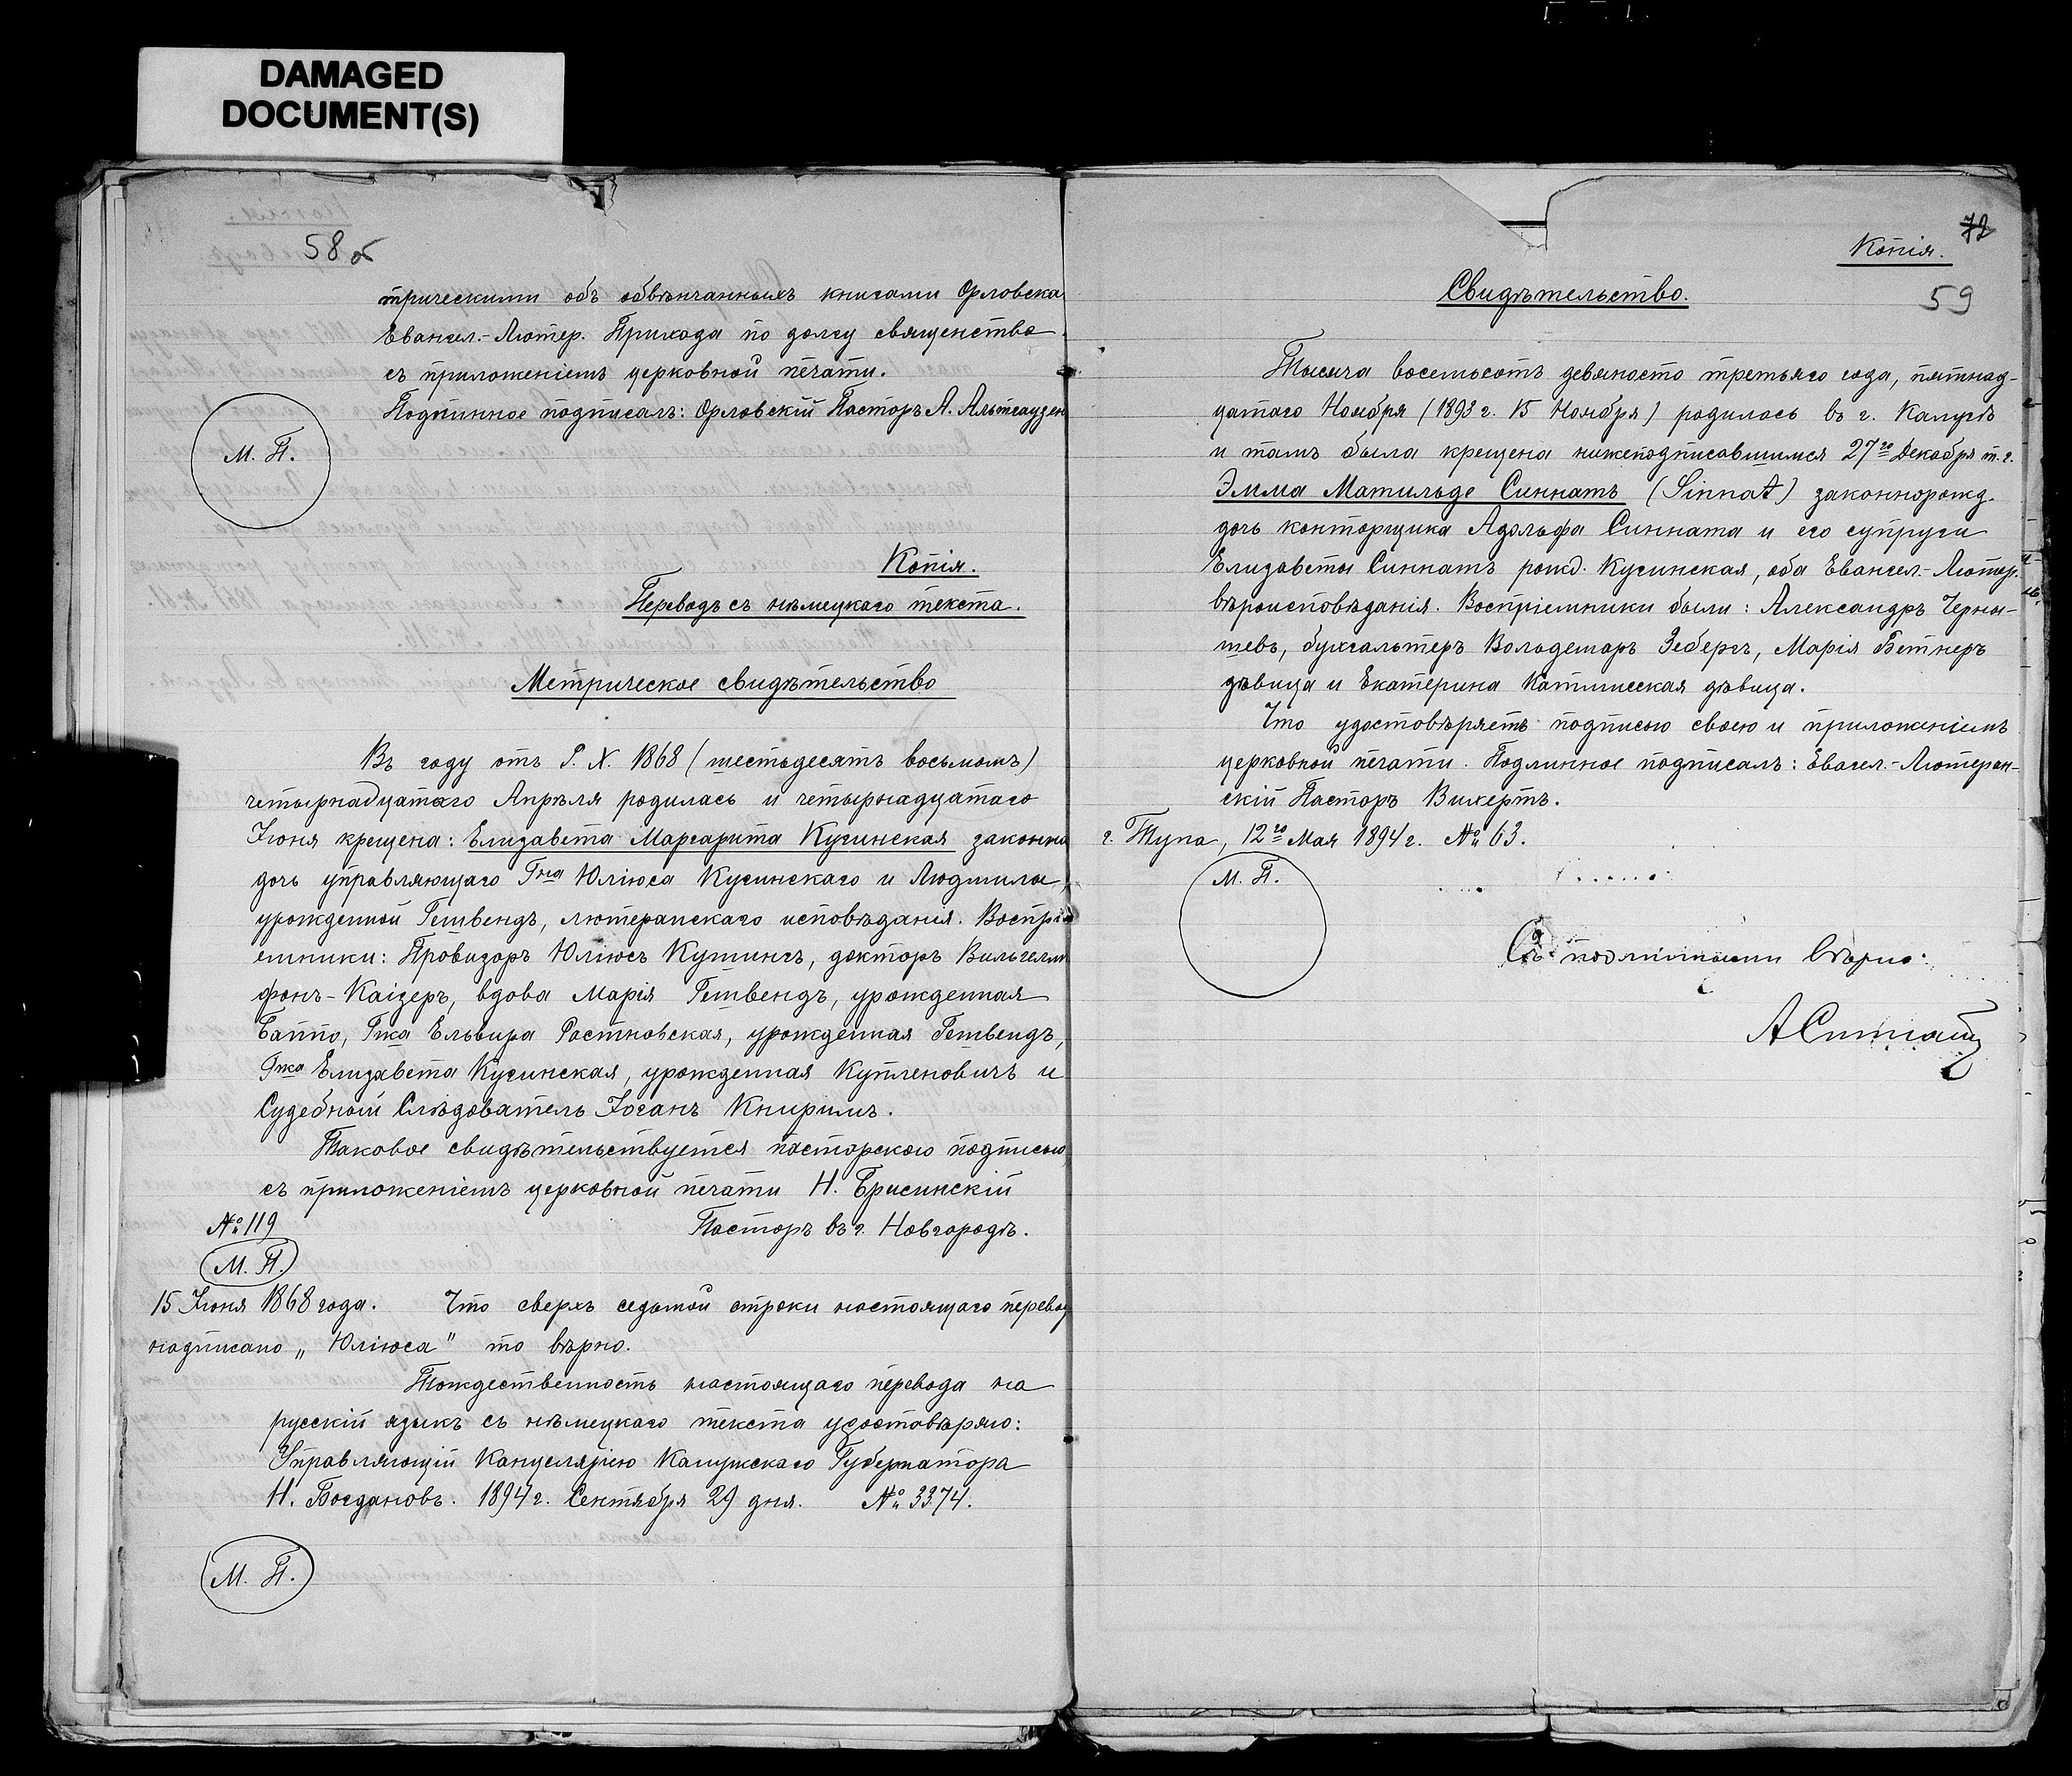 DAMAGED
DOCUMENT(S)
58 об
трическими объ обвѣнчанныхъ книгами Орловска
Евангел.-Лютер. Прихода по долгу священства
съ приложеніемъ церковной печати.
Подлинное подписалъ: Орловскій Пасторъ А. Альтгаузен
М. П.
Копія.
Переводъ съ нѣмецкаго текста.
Метрическое свидѣтельство
Въ году отъ Р. Х. 1868 (шестьдесятъ восьмомъ)
четырнадцатаго Апрѣля родилась и четырнадцатаго
Іюня крещена: Елизавета Маргарита Кучинская законна
дочь управляющаго Гна Юліюса Кучинскаго и Людмилы,
урожденной Гетвендъ, лютеранскаго исповѣданія. Воспрі
емники: Провизоръ Юліюсъ Кушингъ, докторъ Вильгельм
фонъ-Каізеръ, вдова Марія Гетвендъ, урожденная
Баппо, Гжа Эльвира Ростковская, урожденная Гетвендъ,
Гжа Елизавета Кучинская, урожденная Купленовичъ и
Судебный Слѣдователь Іоганъ Книримъ.
Таковое свидѣтельствуется пасторскою подписью,
съ приложеніемъ церковной печати Н. Бр��синскій
№ 119 Пасторъ въ г. Новгородѣ.
М. П.
15 Іюня 1868 года. Что сверхъ седьмой строки настоящаго перевод
надписано „Юліюса" то вѣрно.
Тождественность настоящаго перевода на
русскій языкъ съ нѣмецкаго текста удостовѣряю:
Управляющій Канцеляріею Калужскаго Губернатора
Н. Богдановъ. 1894 г. Сентября 29 дня. № 3374.
М. П.
72
Копія.
59
Свидѣтельство.
Тысяча восемьсотъ девяносто третьяго года, пятнад-
цатаго Ноября (1893 г. 15 Ноября) родилась въ г. Калугѣ
и тамъ была крещена нижеподписавшимся 27го Декабря т. г.
Эмма Матильде Синнатъ (Sinnat) законнорожд.
дочь конторщика Адольфа Синната и его супруги
Елизаветы Синнатъ рожд. Кучинская, оба Евангел.-Лютер.
вѣроисповѣданія. Воспріемники были: Александръ Черны-
шевъ, бухгальтеръ Вольдемаръ Зебергъ, Марія Бетнеръ
дѣвица и Екатерина Катлинская дѣвица.
Что удостовѣряетъ подписью своею и приложеніемъ
церковной печати. Подлинное подписалъ: Евагел.-Лютеран-
скій Пасторъ Вихертъ.
г. Тула, 12го Мая 1894 г. № 63.
М. П.
Съ подлинными вѣрно:
АСиннатъ